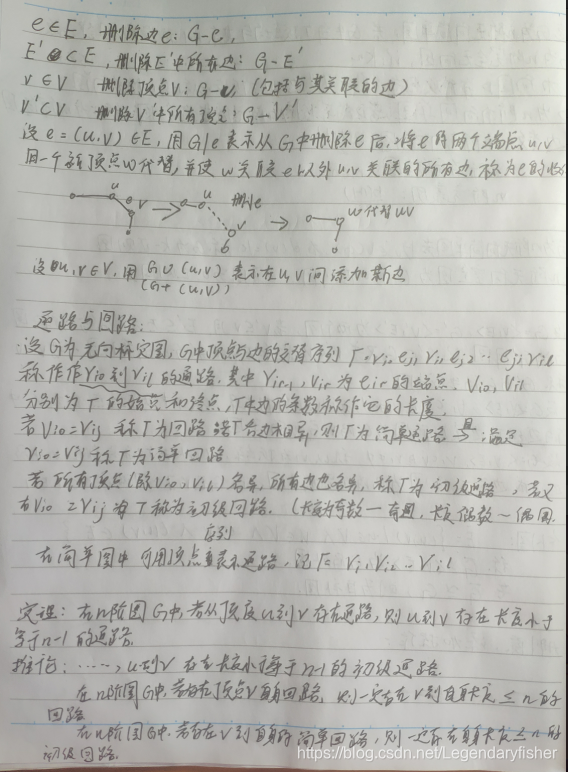 e∈E, 删除边e: G-e,
E'⊂E, 删除E'中所有边: G-E'
v∈V 删除顶点v: G-v, (包括与其关联的边)
V'⊂V 删除V'中所有顶点: G-V'
设e=(u,v)∈E, 用G\e表示从G中删除e后, 将e的两个端点u,v
用一个新顶点w代替, 并使w关联e以外u,v关联的所有边, 称为e的收
u e v u 删除e v w代替uv
设u,v∈V, 用G∪(u,v)表示在u,v间添加新边
(G+(u,v))
通路与回路:
设G为无向标定图, G中顶点与边的交替序列Γ=vi0ej1vi1ej2…ejlvil
称作vi0到vil的通路, 其中vir-1, vir为ejr的端点. vi0, vil
分别为Γ的始点和终点, Γ中边的条数称作它的长度.
若vi0=vij称Γ为回路 若Γ各边相异, 则Γ为简单通路 满足
vi0=vij称Γ为简单回路
若所有顶点(除vi0,vil)各异, 所有边也各异, 称Γ为初级通路, 若又
有vi0=vij将Γ称为初级回路. (长度为奇数—奇圈, 长度偶数~偶圈.
在简单图中可用顶点序列表示通路, 记Γ=vi1vi2…vil
定理: 在n阶图G中, 若从顶点u到v存在通路, 则u到v存在长度小于
等于n-1的通路.
推论: ……, u到v存在长度小于等于n-1的初级通路.
在n阶图G中, 若存在顶点v到自身回路, 则一定存在v到自身长度≤n的
回路
在n阶图G中, 若存在v到自身的简单回路, 则一定存在自身长度≤n的
初级回路.
https://blog.csdn.net/Legendaryfisher